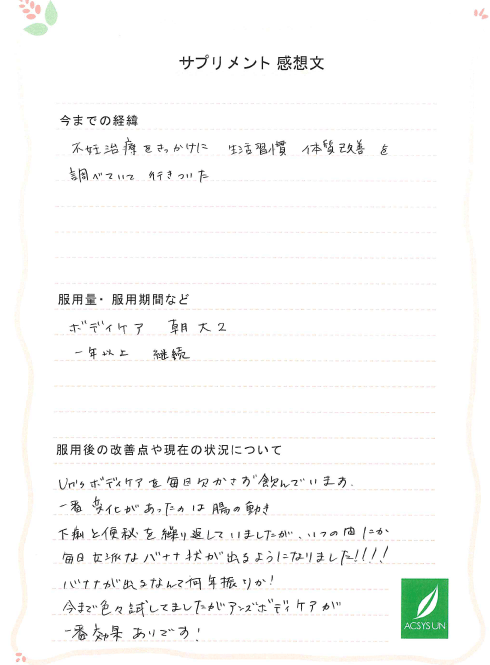 サプリメント 感想文
今までの経緯
不妊治療をきっかけに 生活習慣 体質改善 を
調べていて 行きついた
服用量・服用期間など
ボディケア 朝 大2
一年以上 継続
服用後の改善点や現在の状況について
ボディケアを毎日欠かさず飲んでいます.
一番変化があったのは腸の動き
下痢と便秘を繰り返していましたが、いつの間にか
毎日立派なバナナ状が出るようになりました!!!!
バナナが出るなんて何年振りか!
今まで色々試してましたがアンズボディケアが
一番効果ありです!
ACSYSUN